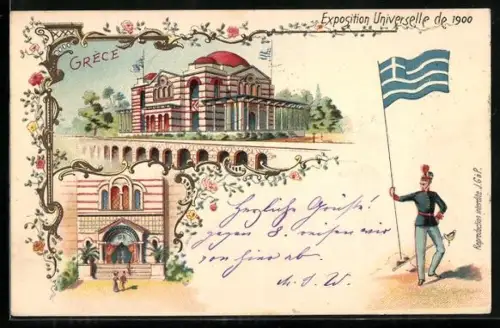 Exposition Universelle de 1900
GRÈCE
Herzliche Grüße!
gegen 8. reisen wir
von hier ab
M. S. W.
Reproduction interdite J.G.&P.